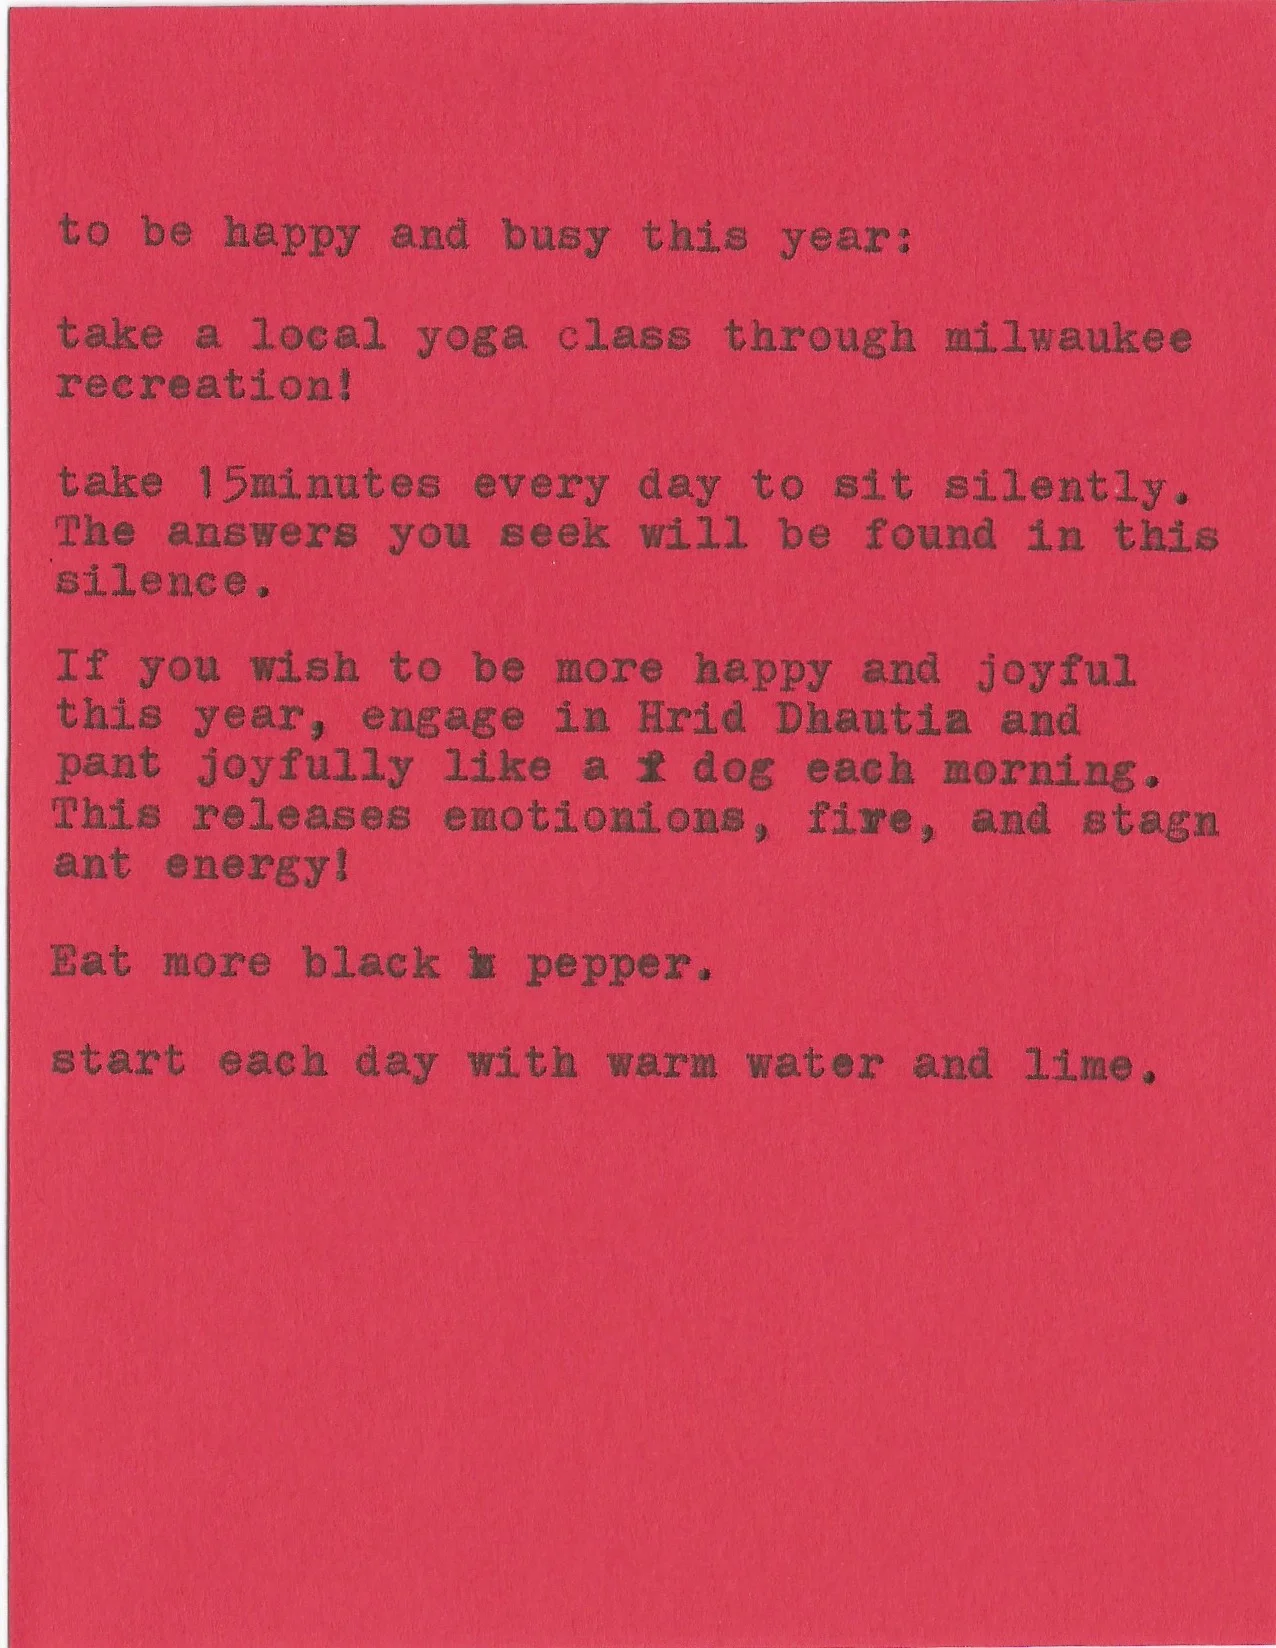 to be happy and busy this year:
take a local yoga class through milwaukee
recreation!
take 15minutes every day to sit silently.
The answers you seek will be found in this
silence.
If you wish to be more happy and joyful
this year, engage in Hrid Dhautia and
pant joyfully like a dog each morning.
This releases emotionions, fire, and stagn
ant energy!
Eat more black pepper.
start each day with warm water and lime.